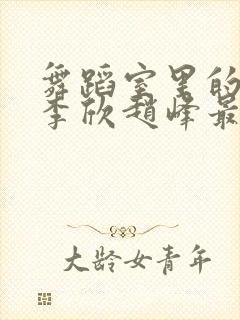 舞蹈室里的
李欣赵峰最
大龄女青年